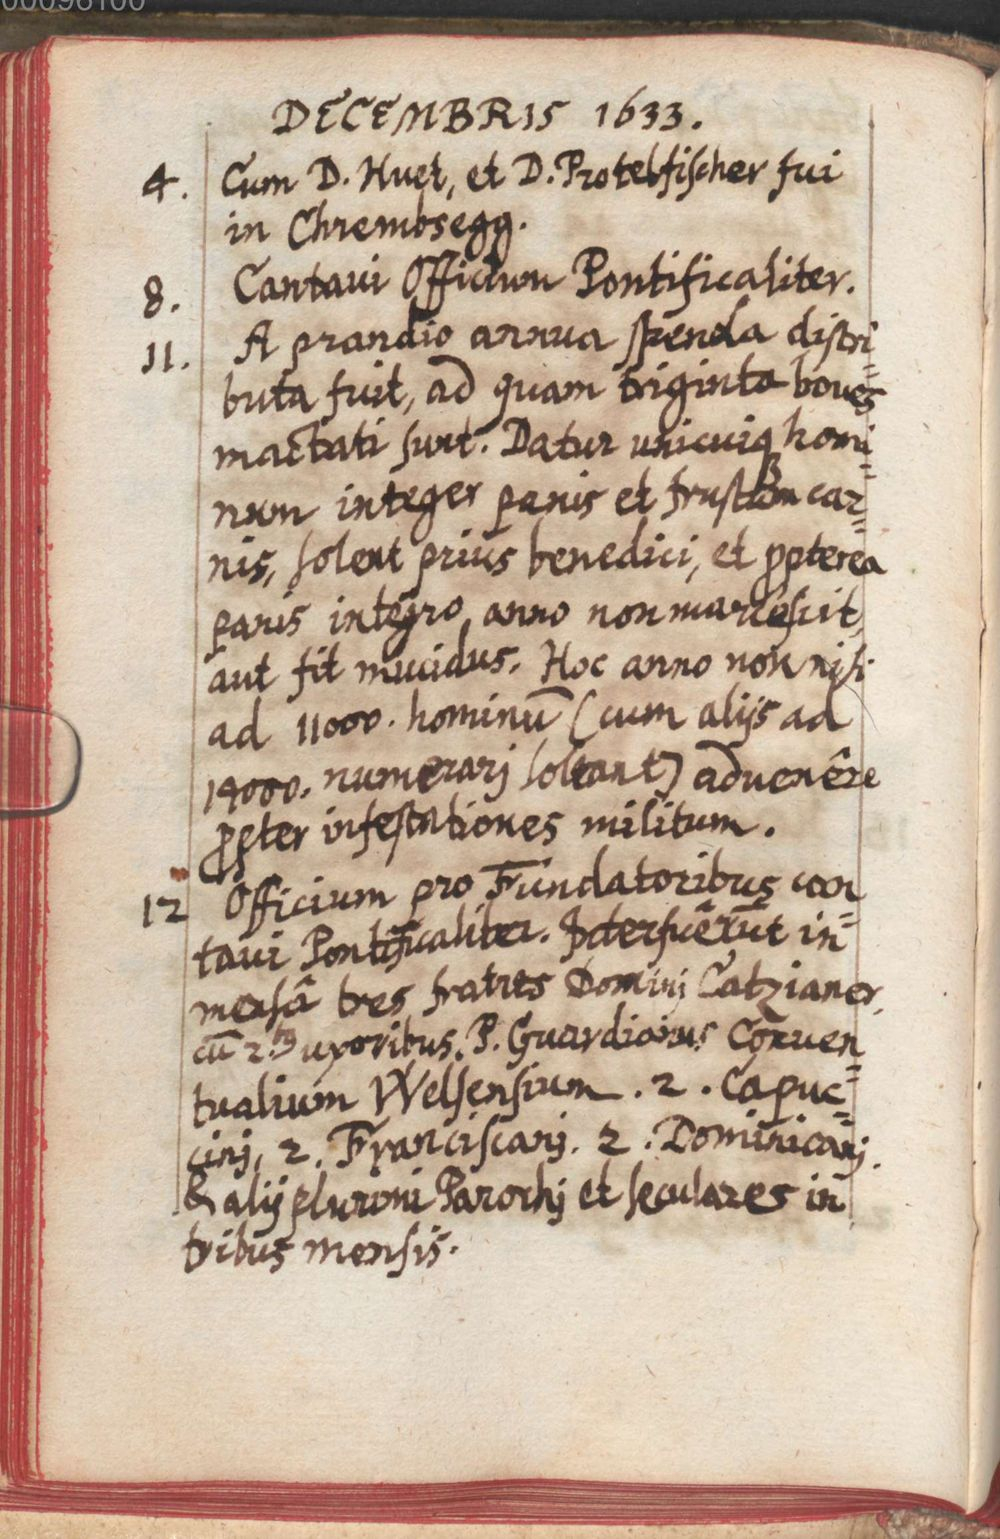 00096100
DECEMBRIS 1633.
4. Cum D. Huet, et D. Protelfischer fui
in Chrembsegg.
8. Cantavi Officium Pontificaliter.
11. A prandio annua spenda distri=
buta fuit, ad quam triginta boves
mactati sunt. Datur unicuiq homi=
num integer panis et frustum car=
nis, solent prius benedici, et ꝓpterea
panis integro anno non marcescit,
aut fit mucidus. Hoc anno non nisi
ad 11000. hominū (cum alijs ad
14000. numerarj soleant) advenêre
ꝓpter infestationes militum.
12 Officium pro Fundatoribus can=
tavi Pontificaliter. Interfuêrūt in
mensâ tres fratres Dominj Catzianer,
cū 2.bꝰ uxoribus. P. Guardianus Conven=
tualium Welsensium. 2. Capuc=
cinj, 2. Franciscanj. 2. Dominicanj.
& alij plurimi Parochj et seculares in
tribus mensis.